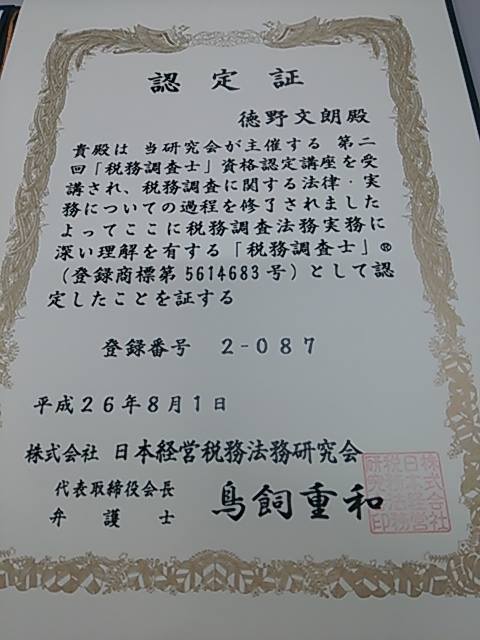 認定証
徳野文朗殿
貴殿は 当研究会が主催する 第二
回「税務調査士」資格認定講座を受
講され、税務調査に関する法律・実
務についての過程を修了されました
よってここに税務調査法務実務に
深い理解を有する「税務調査士」®
(登録商標第5614683号)として認
定したことを証する
登録番号 2-087
平成26年8月1日
株式会社 日本経営税務法務研究会
代表取締役会長
弁護士
鳥飼重和
株式会社
日本経営
税務法務
研究会印